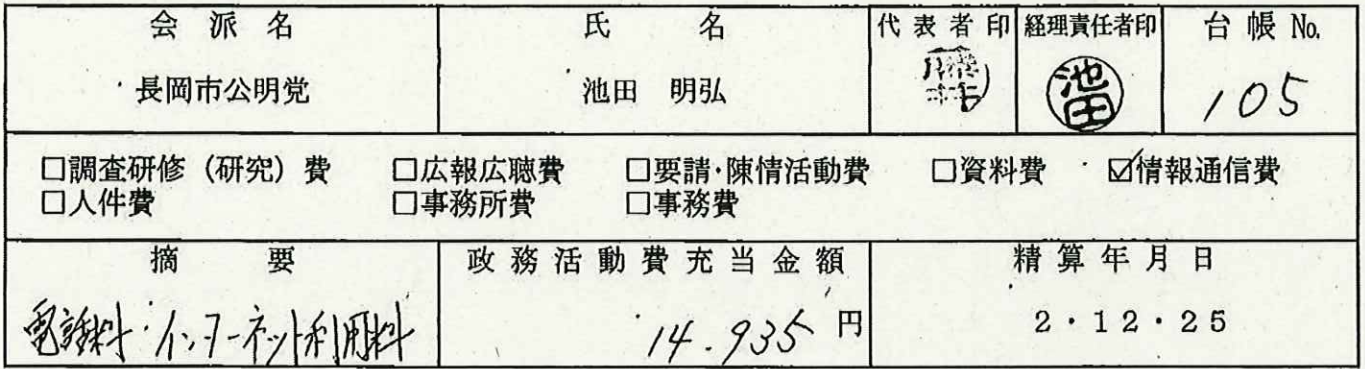 会派名 氏名 代表者印 経理責任者印 台帳No.
長岡市公明党 池田 明弘 池田 105
□調査研修(研究)費 □広報広聴費 □要請・陳情活動費 □資料費 ☑情報通信費
□人件費 □事務所費 □事務費
摘要 政務活動費充当金額 精算年月日
電話料・インターネット利用料 14.935円 2・12・25